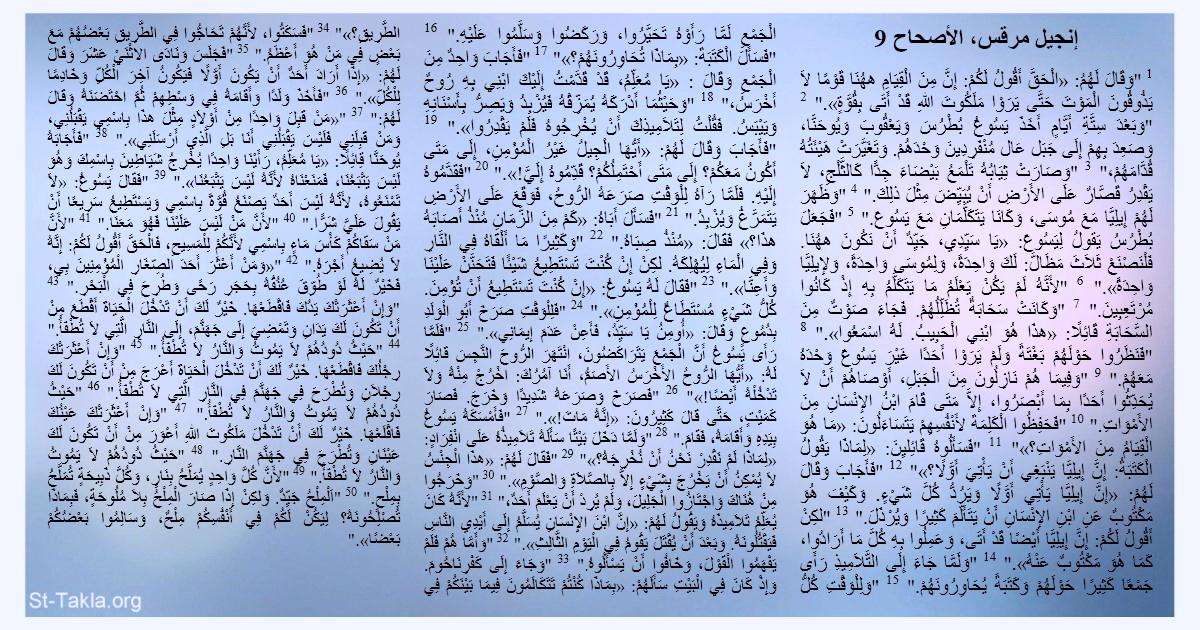 إنجيل مرقس، الأصحاح 9
1 "وَقَالَ لَهُمُ: «الْحَقَّ أَقُولُ لَكُمْ: إِنَّ مِنَ الْقِيَامِ ههُنَا قَوْمًا لاَ
يَذُوقُونَ الْمَوْتَ حَتَّى يَرَوْا مَلَكُوتَ اللهِ قَدْ أَتَى بِقُوَّةٍ»." 2
"وَبَعْدَ سِتَّةِ أَيَّامٍ أَخَذَ يَسُوعُ بُطْرُسَ وَيَعْقُوبَ وَيُوحَنَّا،
وَصَعِدَ بِهِمْ إِلَى جَبَل عَال مُنْفَرِدِينَ وَحْدَهُمْ. وَتَغَيَّرَتْ هَيْئَتُهُ
قُدَّامَهُمْ،" 3 "وَصَارَتْ ثِيَابُهُ تَلْمَعُ بَيْضَاءَ جِدًّا كَالثَّلْجِ، لاَ
يَقْدِرُ قَصَّارٌ عَلَى الأَرْضِ أَنْ يُبَيِّضَ مِثْلَ ذلِكَ." 4 "وَظَهَرَ
لَهُمْ إِيلِيَّا مَعَ مُوسَى، وَكَانَا يَتَكَلَّمَانِ مَعَ يَسُوعَ." 5 "فَجَعَلَ
بُطْرُسُ يَقولُ لِيَسُوعَ: «يَا سَيِّدِي، جَيِّدٌ أَنْ نَكُونَ ههُنَا.
فَلْنَصْنَعْ ثَلاَثَ مَظَالَّ: لَكَ وَاحِدَةً، وَلِمُوسَى وَاحِدَةً، وَلإِيلِيَّا
وَاحِدَةً»." 6 "لأَنَّهُ لَمْ يَكُنْ يَعْلَمُ مَا يَتَكَلَّمُ بِهِ إِذْ كَانُوا
مُرْتَعِبِينَ." 7 "وَكَانَتْ سَحَابَةٌ تُظَلِّلُهُمْ. فَجَاءَ صَوْتٌ مِنَ
السَّحَابَةِ قَائِلاً: «هذَا هُوَ ابْنِي الْحَبِيبُ. لَهُ اسْمَعُوا»." 8
"فَنَظَرُوا حَوْلَهُمْ بَغْتَةً وَلَمْ يَرَوْا أَحَدًا غَيْرَ يَسُوعَ وَحْدَهُ
مَعَهُمْ." 9 "وَفِيمَا هُمْ نَازِلُونَ مِنَ الْجَبَلِ، أَوْصَاهُمْ أَنْ لاَ
يُحَدِّثُوا أَحَدًا بِمَا أَبْصَرُوا، إِلاَّ مَتَى قَامَ ابْنُ الإِنْسَانِ مِنَ
الأَمْوَاتِ." 10 "فَحَفِظُوا الْكَلِمَةَ لأَنْفُسِهِمْ يَتَسَاءَلُونَ: «مَا هُوَ
الْقِيَامُ مِنَ الأَمْوَاتِ؟»" 11 "فَسَأَلُوهُ قَائِليِنَ: «لِمَاذَا يَقُولُ
الْكَتَبَةُ: إِنَّ إِيلِيَّا يَنْبَغِي أَنْ يَأْتِيَ أَوَّلاً؟»" 12 "فَأَجَابَ وَقَالَ
لَهُمْ: «إِنَّ إِيلِيَّا يَأْتِي أَوَّلاً وَيَرُدُّ كُلَّ شَيْءٍ. وَكَيْفَ هُوَ
مَكْتُوبٌ عَنِ ابْنِ الإِنْسَانِ أَنْ يَتَأَلَّمَ كَثِيرًا وَيُرْذَلَ." 13 "لكِنْ
أَقُولُ لَكُمْ: إِنَّ إِيلِيَّا أَيْضًا قَدْ أَتَى، وَعَمِلُوا بِهِ كُلَّ مَا أَرَادُوا،
كَمَا هُوَ مَكْتُوبٌ عَنْهُ»." 14 "وَلَمَّا جَاءَ إِلَى التَّلاَمِيذِ رَأَى
جَمْعًا كَثِيرًا حَوْلَهُمْ وَكَتَبَةً يُحَاوِرُونَهُمْ." 15 "وَلِلْوَقْتِ كُلُّ
الْجَمْعِ لَمَّا رَأَوْهُ تَحَيَّرُوا، وَرَكَضُوا وَسَلَّمُوا عَلَيْهِ." 16
"فَسَأَلَ الْكَتَبَةَ: «بِمَاذَا تُحَاوِرُونَهُمْ؟»" 17 "فَأَجَابَ وَاحِدٌ مِنَ
الْجَمْعِ وَقَالَ : «يَا مُعَلِّمُ، قَدْ قَدَّمْتُ إِلَيْكَ ابْنِي بِهِ رُوحٌ
أَخْرَسُ،" 18 "وَحَيْثُمَا أَدْرَكَهُ يُمَزِّقْهُ فَيُزْبِدُ وَيَصِرُّ بِأَسْنَانِهِ
وَيَيْبَسُ. فَقُلْتُ لِتَلاَمِيذِكَ أَنْ يُخْرِجُوهُ فَلَمْ يَقْدِرُوا»." 19
"فَأَجَابَ وَقَالَ لَهُمْ: «أَيُّهَا الْجِيلُ غَيْرُ الْمُؤْمِنِ، إِلَى مَتَى
أَكُونُ مَعَكُمْ؟ إِلَى مَتَى أَحْتَمِلُكُمْ؟ قَدِّمُوهُ إِلَيَّ!»." 20 "فَقَدَّمُوهُ
إِلَيْهِ. فَلَمَّا رَآهُ لِلْوَقْتِ صَرَعَهُ الرُّوحُ، فَوَقَعَ عَلَى الأَرْضِ
يَتَمَرَّغُ وَيُزْبِدُ." 21 "فَسَأَلَ أَبَاهُ: «كَمْ مِنَ الزَّمَانِ مُنْذُ أَصَابَهُ
هذَا؟» فَقَالَ: «مُنْذُ صِبَاهُ." 22 "وَكَثِيرًا مَا أَلْقَاهُ فِي النَّارِ
وَفِي الْمَاءِ لِيُهْلِكَهُ. لكِنْ إِنْ كُنْتَ تَسْتَطِيعُ شَيْئًا فَتَحَنَّنْ عَلَيْنَا
وَأَعِنَّا»." 23 "فَقَالَ لَهُ يَسُوعُ: «إِنْ كُنْتَ تَسْتَطِيعُ أَنْ تُؤْمِنَ.
كُلُّ شَيْءٍ مُسْتَطَاعٌ لِلْمُؤْمِنِ»." 24 "فَلِلْوَقْتِ صَرَخَ أَبُو الْوَلَدِ
بِدُمُوعٍ وَقَالَ: «أُومِنُ يَا سَيِّدُ، فَأَعِنْ عَدَمَ إِيمَانِي»." 25 "فَلَمَّا
رَأَى يَسُوعُ أَنَّ الْجَمْعَ يَتَرَاكَضُونَ، انْتَهَرَ الرُّوحَ النَّجِسَ قَائِلاً
لَهُ: «أَيُّهَا الرُّوحُ الأَخْرَسُ الأَصَمُّ، أَنَا آمُرُكَ: اخْرُجْ مِنْهُ وَلاَ
تَدْخُلْهُ أَيْضًا!»" 26 "فَصَرَخَ وَصَرَعَهُ شَدِيدًا وَخَرَجَ. فَصَارَ
كَمَيْتٍ، حَتَّى قَالَ كَثِيرُونَ: «إِنَّهُ مَاتَ!»." 27 "فَأَمْسَكَهُ يَسُوعُ
بِيَدِهِ وَأَقَامَهُ، فَقَامَ." 28 "وَلَمَّا دَخَلَ بَيْتًا سَأَلَهُ تَلاَمِيذُهُ عَلَى انْفِرَادٍ:
«لِمَاذَا لَمْ نَقْدِرْ نَحْنُ أَنْ نُخْرِجَهُ؟»" 29 "فَقَالَ لَهُمْ: «هذَا الْجِنْسُ
لاَ يُمْكِنُ أَنْ يَخْرُجَ بِشَيْءٍ إِلاَّ بِالصَّلاَةِ وَالصَّوْمِ»." 30 "وَخَرَجُوا
مِنْ هُنَاكَ وَاجْتَازُوا الْجَلِيلَ، وَلَمْ يُرِدْ أَنْ يَعْلَمَ أَحَدٌ،" 31 "لأَنَّهُ كَانَ
يُعَلِّمُ تَلاَمِيذَهُ وَيَقُولُ لَهُمْ: «إِنَّ ابْنَ الإِنْسَانِ يُسَلَّمُ إِلَى أَيْدِي النَّاسِ
فَيَقْتُلُونَهُ. وَبَعْدَ أَنْ يُقْتَلَ يَقُومُ فِي الْيَوْمِ الثَّالِثِ»." 32 "وَأَمَّا هُمْ فَلَمْ
يَفْهَمُوا الْقَوْلَ، وَخَافُوا أَنْ يَسْأَلُوهُ." 33 "وَجَاءَ إِلَى كَفْرِنَاحُومَ.
وَإِذْ كَانَ فِي الْبَيْتِ سَأَلَهُمْ: «بِمَاذَا كُنْتُمْ تَتَكَالَمُونَ فِيمَا بَيْنَكُمْ فِي
الطَّرِيقِ؟»" 34 "فَسَكَتُوا، لأَنَّهُمْ تَحَاجُّوا فِي الطَّرِيقِ بَعْضُهُمْ مَعَ
بَعْضٍ فِي مَنْ هُوَ أَعْظَمُ." 35 "فَجَلَسَ وَنَادَى الاثْنَيْ عَشَرَ وَقَالَ
لَهُمْ: «إِذَا أَرَادَ أَحَدٌ أَنْ يَكُونَ أَوَّلاً فَيَكُونُ آخِرَ الْكُلِّ وَخَادِمًا
لِلْكُلِّ»." 36 "فَأَخَذَ وَلَدًا وَأَقَامَهُ فِي وَسْطِهِمْ ثُمَّ احْتَضَنَهُ وَقَالَ
لَهُمْ:" 37 "«مَنْ قَبِلَ وَاحِدًا مِنْ أَوْلاَدٍ مِثْلَ هذَا بِاسْمِي يَقْبَلُنِي،
وَمَنْ قَبِلَنِي فَلَيْسَ يَقْبَلُنِي أَنَا بَلِ الَّذِي أَرْسَلَنِي»." 38 "فَأَجَابَهُ
يُوحَنَّا قِائِلاً: «يَا مُعَلِّمُ، رَأَيْنَا وَاحِدًا يُخْرِجُ شَيَاطِينَ بِاسْمِكَ وَهُوَ
لَيْسَ يَتْبَعُنَا، فَمَنَعْنَاهُ لأَنَّهُ لَيْسَ يَتْبَعُنَا»." 39 "فَقَالَ يَسُوعُ: «لاَ
تَمْنَعُوهُ، لأَنَّهُ لَيْسَ أَحَدٌ يَصْنَعُ قُوَّةً بِاسْمِي وَيَسْتَطِيعُ سَرِيعًا أَنْ
يَقُولَ عَلَيَّ شَرًّا." 40 "لأَنَّ مَنْ لَيْسَ عَلَيْنَا فَهُوَ مَعَنَا." 41 "لأَنَّ
مَنْ سَقَاكُمْ كَأْسَ مَاءٍ بِاسْمِي لأَنَّكُمْ لِلْمَسِيحِ، فَالْحَقَّ أَقُولُ لَكُمْ: إِنَّهُ
لاَ يُضِيعُ أَجْرَهُ." 42 "«وَمَنْ أَعْثَرَ أَحَدَ الصِّغَارِ الْمُؤْمِنِينَ بِي،
فَخَيْرٌ لَهُ لَوْ طُوِّقَ عُنُقُهُ بِحَجَرِ رَحًى وَطُرِحَ فِي الْبَحْرِ." 43
"وَإِنْ أَعْثَرَتْكَ يَدُكَ فَاقْطَعْهَا. خَيْرٌ لَكَ أَنْ تَدْخُلَ الْحَيَاةَ أَقْطَعَ مِنْ
أَنْ تَكُونَ لَكَ يَدَانِ وَتَمْضِيَ إِلَى جَهَنَّمَ، إِلَى النَّارِ الَّتِي لاَ تُطْفَأُ."
44 "حَيْثُ دُودُهُمْ لاَ يَمُوتُ وَالنَّارُ لاَ تُطْفَأُ." 45 "وَإِنْ أَعْثَرَتْكَ
رِجْلُكَ فَاقْطَعْهَا. خَيْرٌ لَكَ أَنْ تَدْخُلَ الْحَيَاةَ أَعْرَجَ مِنْ أَنْ تَكُونَ لَكَ
رِجْلاَنِ وَتُطْرَحَ فِي جَهَنَّمَ فِي النَّارِ الَّتِي لاَ تُطْفَأُ." 46 "حَيْثُ
دُودُهُمْ لاَ يَمُوتُ وَالنَّارُ لاَ تُطْفَأُ." 47 "وَإِنْ أَعْثَرَتْكَ عَيْنُكَ
فَاقْلَعْهَا. خَيْرٌ لَكَ أَنْ تَدْخُلَ مَلَكُوتَ اللهِ أَعْوَرَ مِنْ أَنْ تَكُونَ لَكَ
عَيْنَانِ وَتُطْرَحَ فِي جَهَنَّمِ النَّارِ." 48 "حَيْثُ دُودُهُمْ لاَ يَمُوتُ
وَالنَّارُ لاَ تُطْفَأُ." 49 "لأَنَّ كُلَّ وَاحِدٍ يُمَلَّحُ بِنَارٍ، وَكُلَّ ذَبِيحَةٍ تُمَلَّحُ
بِمِلْحٍ." 50 "اَلْمِلْحُ جَيِّدٌ. وَلكِنْ إِذَا صَارَ الْمِلْحُ بِلاَ مُلُوحَةٍ، فَبِمَاذَا
تُصْلِحُونَهُ؟ لِيَكُنْ لَكُمْ فِي أَنْفُسِكُمْ مِلْحٌ، وَسَالِمُوا بَعْضُكُمْ
بَعْضًا»."
St-Takla.org